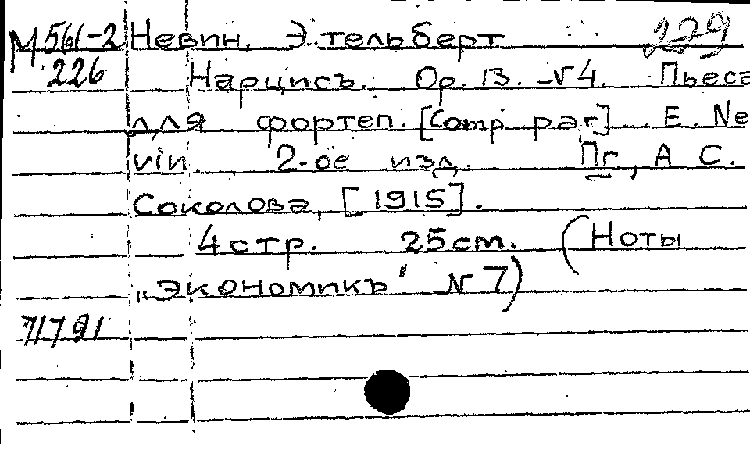 М 561-2 Невин, Этельберт 229
226 Нарцисъ. Op. 13. – N 4. Пьеса
для фортеп. [Comp. par] E. Ne
vin. 2-ое изд. Пг, А С.
Соколова, [1915].
4 стр. 25 cm. (Ноты
„Экономикъ" N 7)
71791